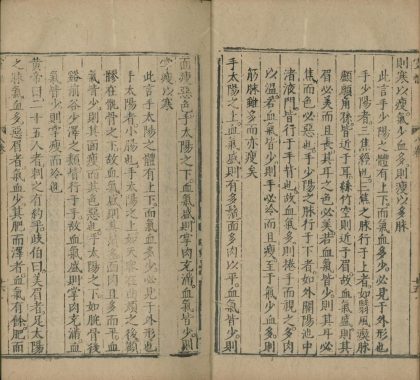 則寒以瘦氣少血多則瘦以多脉
此言手少陽之體有上下而氣血多少必見于外形也
手少陽者三焦經也三焦之脉行于上者如翳風瘈脉
顱顖角孫皆近于耳絲竹空則近于眉故血氣盛則
眉必美而且長其耳之色必美若血氣皆少則其耳必
焦而色必惡也手少陽之脉行于下者如外關陽池中
渚液門皆行于手背也故血氣多則捲手而視之多肉
以溫若血氣皆少則手必冷而且瘦至于氣少血多則
筋脉雖多而亦瘦矣
手太陽之上血氣盛則有多鬚面多肉以平血氣皆少則
面瘦惡色手太陽之下血氣盛則掌肉充滿血氣皆少則
掌瘦以寒
此言手太陽之體有上下而氣血多少必見于外形也
手太陽者小腸也手太陽之上如天窻在面頰之後顴
髎在䪼骨之下故血氣盛則面肉且多而平血
氣皆少則其面瘦而其色惡也手太陽之下如腕骨後
谿前谷少澤之類皆行于手故血氣盛則掌肉充滿血
氣皆少則掌瘦而冷也
黄帝曰二十五人者刺之有約乎岐伯曰美眉者足太陽
之脉氣血多惡眉者氣血少其肥而澤者血氣有餘肥而